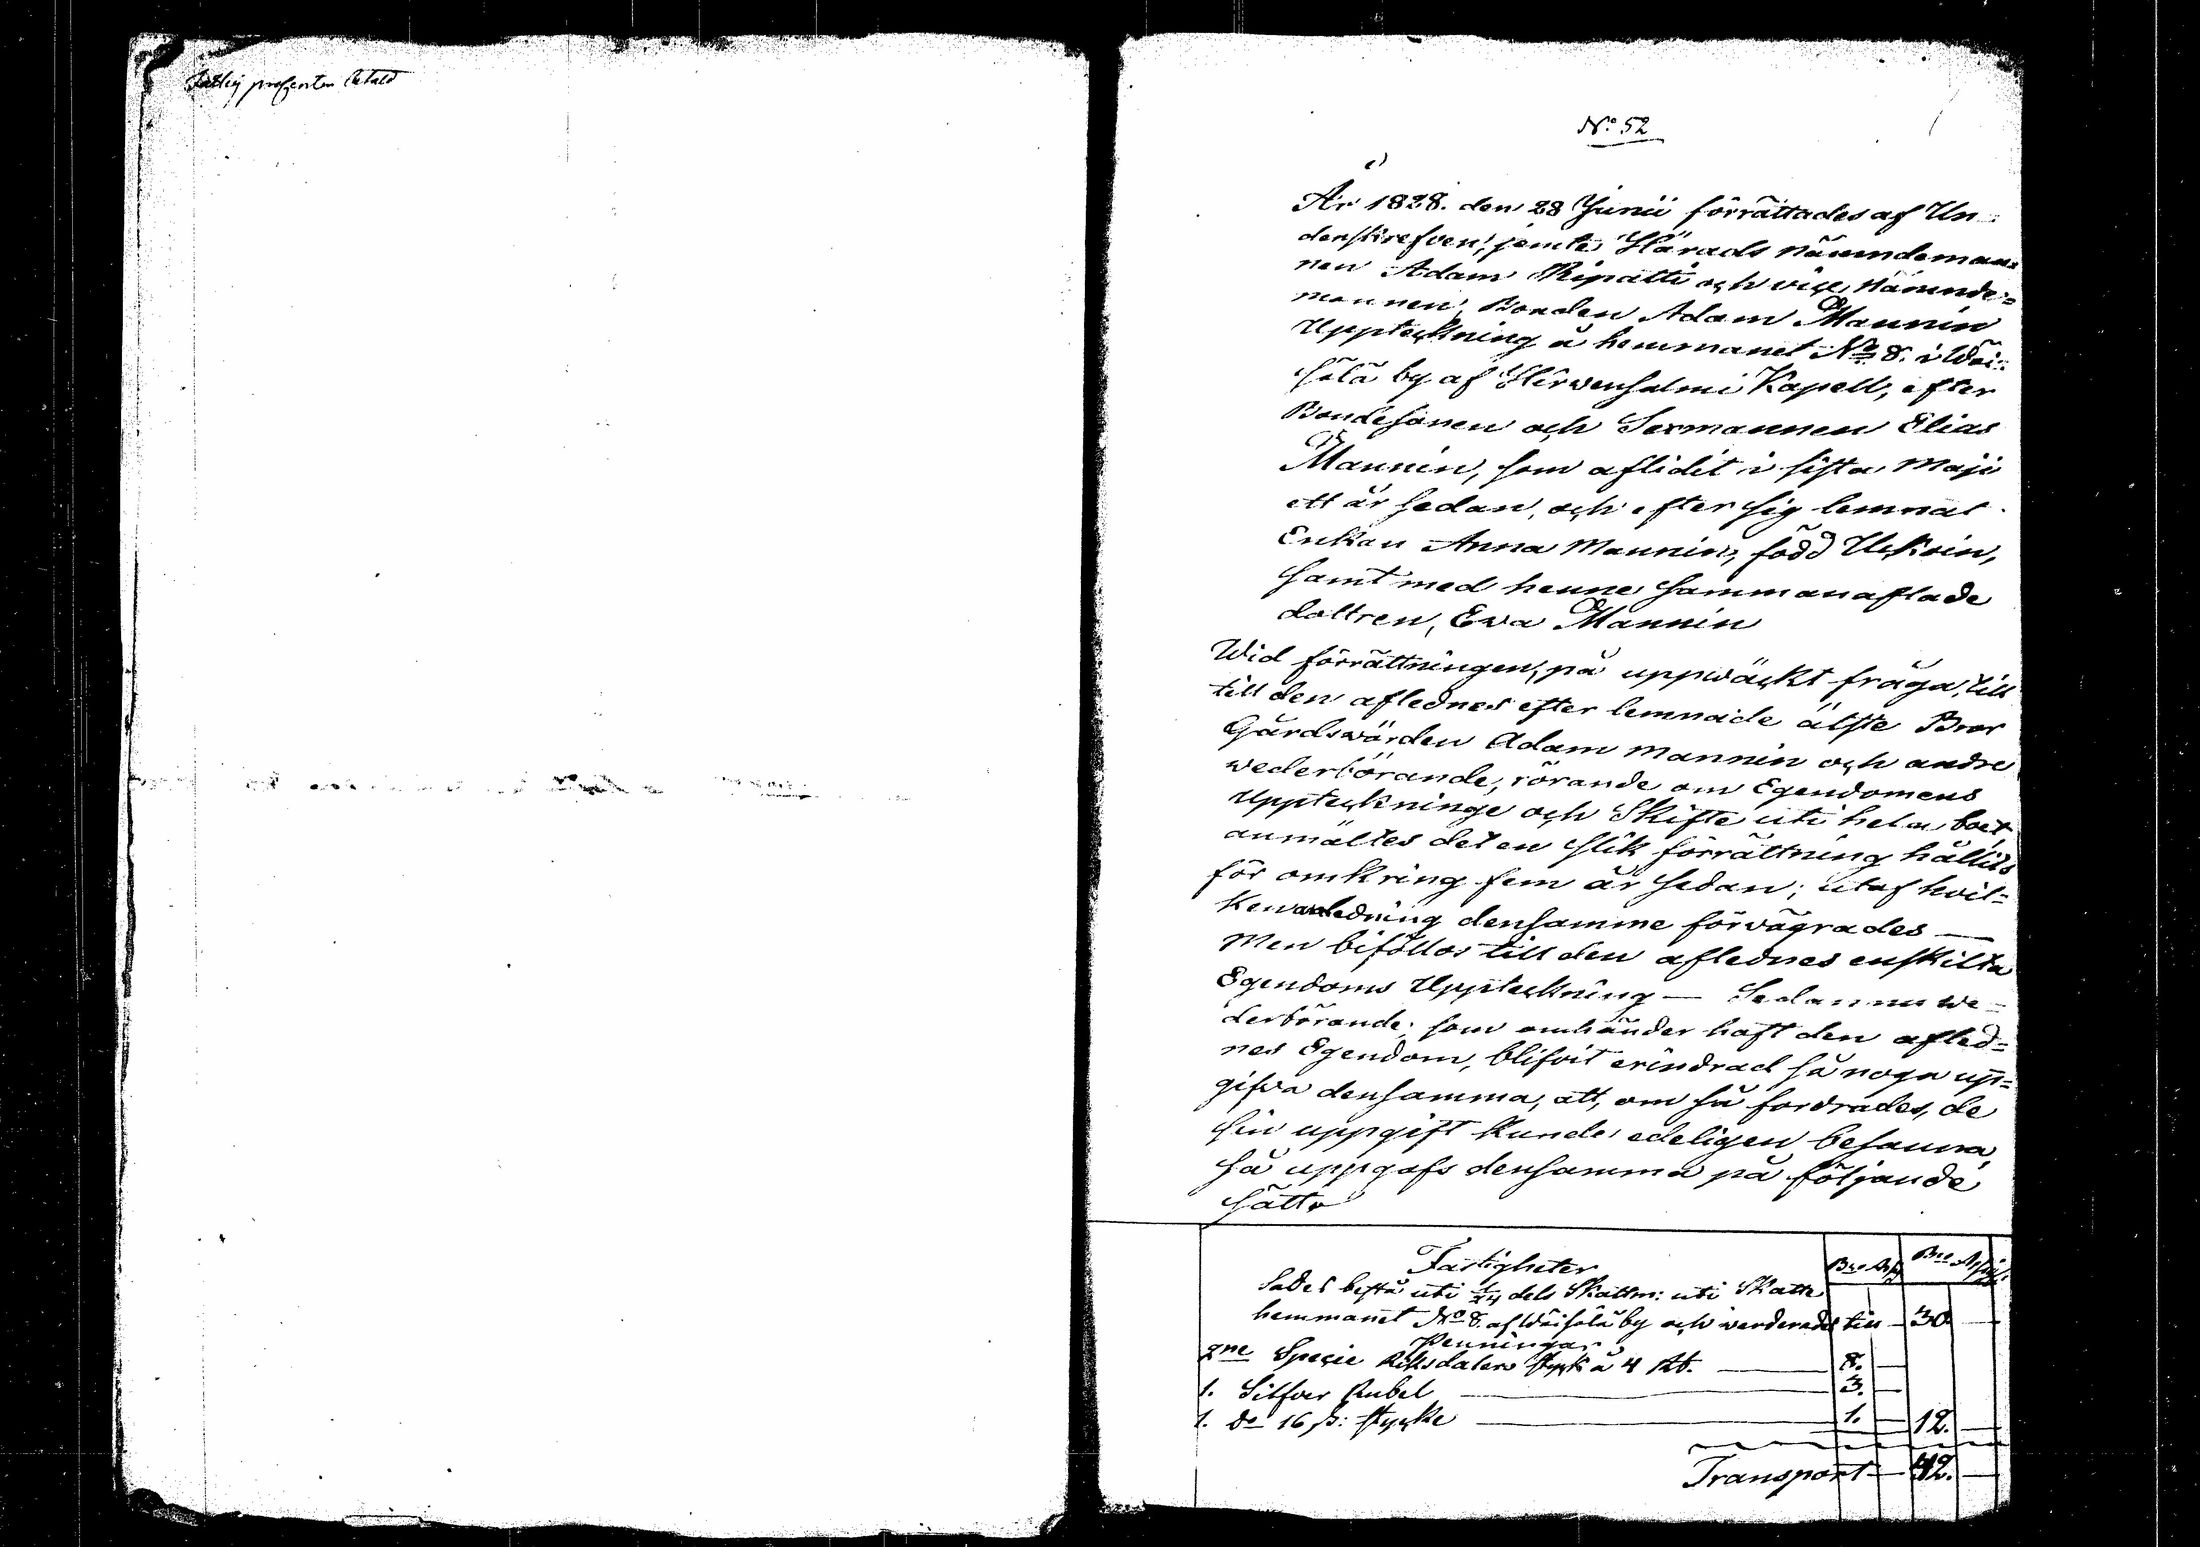 Fattig procenten betald
No 52
År 1828. den 28 Junii förrättades af Un=
denskrefven, jemte Härads Nämndeman=
nen Adam Ripatti och vice Nämnde=
mannen, Bonden Adam Mannin
Uppteckning å hemmanet No 8. i Wäi=
sälä by af Hirwensalmi Kapell, efter
Bondesonen och Sexmannen Elias
Mannin, som aflidit i sista Maji
ett år sedan, och efter sig lemnat
Enkan Anna Mannin, född Uckoin,
samt med henne sammanaflade
dottren, Ewa Mannin
Wid förrättningen, på uppwäckt fråga, till
till den aflednes efter lemnade älste Bror
Gårdswärden Adam Mannin och andre
wederbörande, rörande om Egendomens
Uppteckninge och Skifte uti hela boet,
anmältes det en slik förrättning hållits
för omkring fem år sedan; utaf hvil=
ken anledning densamme förvägrades —
Men biföllos till den aflednes enskilta
Egendoms Uppteckning — Sedan nu we=
derbörande, som omhänder haft den afled=
nes Egendom, blifvit erindrad så noga upp=
gifva densamma, att, om så fordrades, de
sin uppgift kunde edeligen besanna,
så uppgafs densamma på följande
sätt
Fastigheter
Sades bestå uti 1/24 dels Skattm: uti Skatte
hemmanet No 8. af Wäisälä by och werderades till — 30 —
Penningar
2ne Specie Riksdalers styck à 4 Rb. — 8. —
1. Silfver Rubel — 3. —
1. do 16 s: stycke — 1. — 12. —
Transport — 42. —